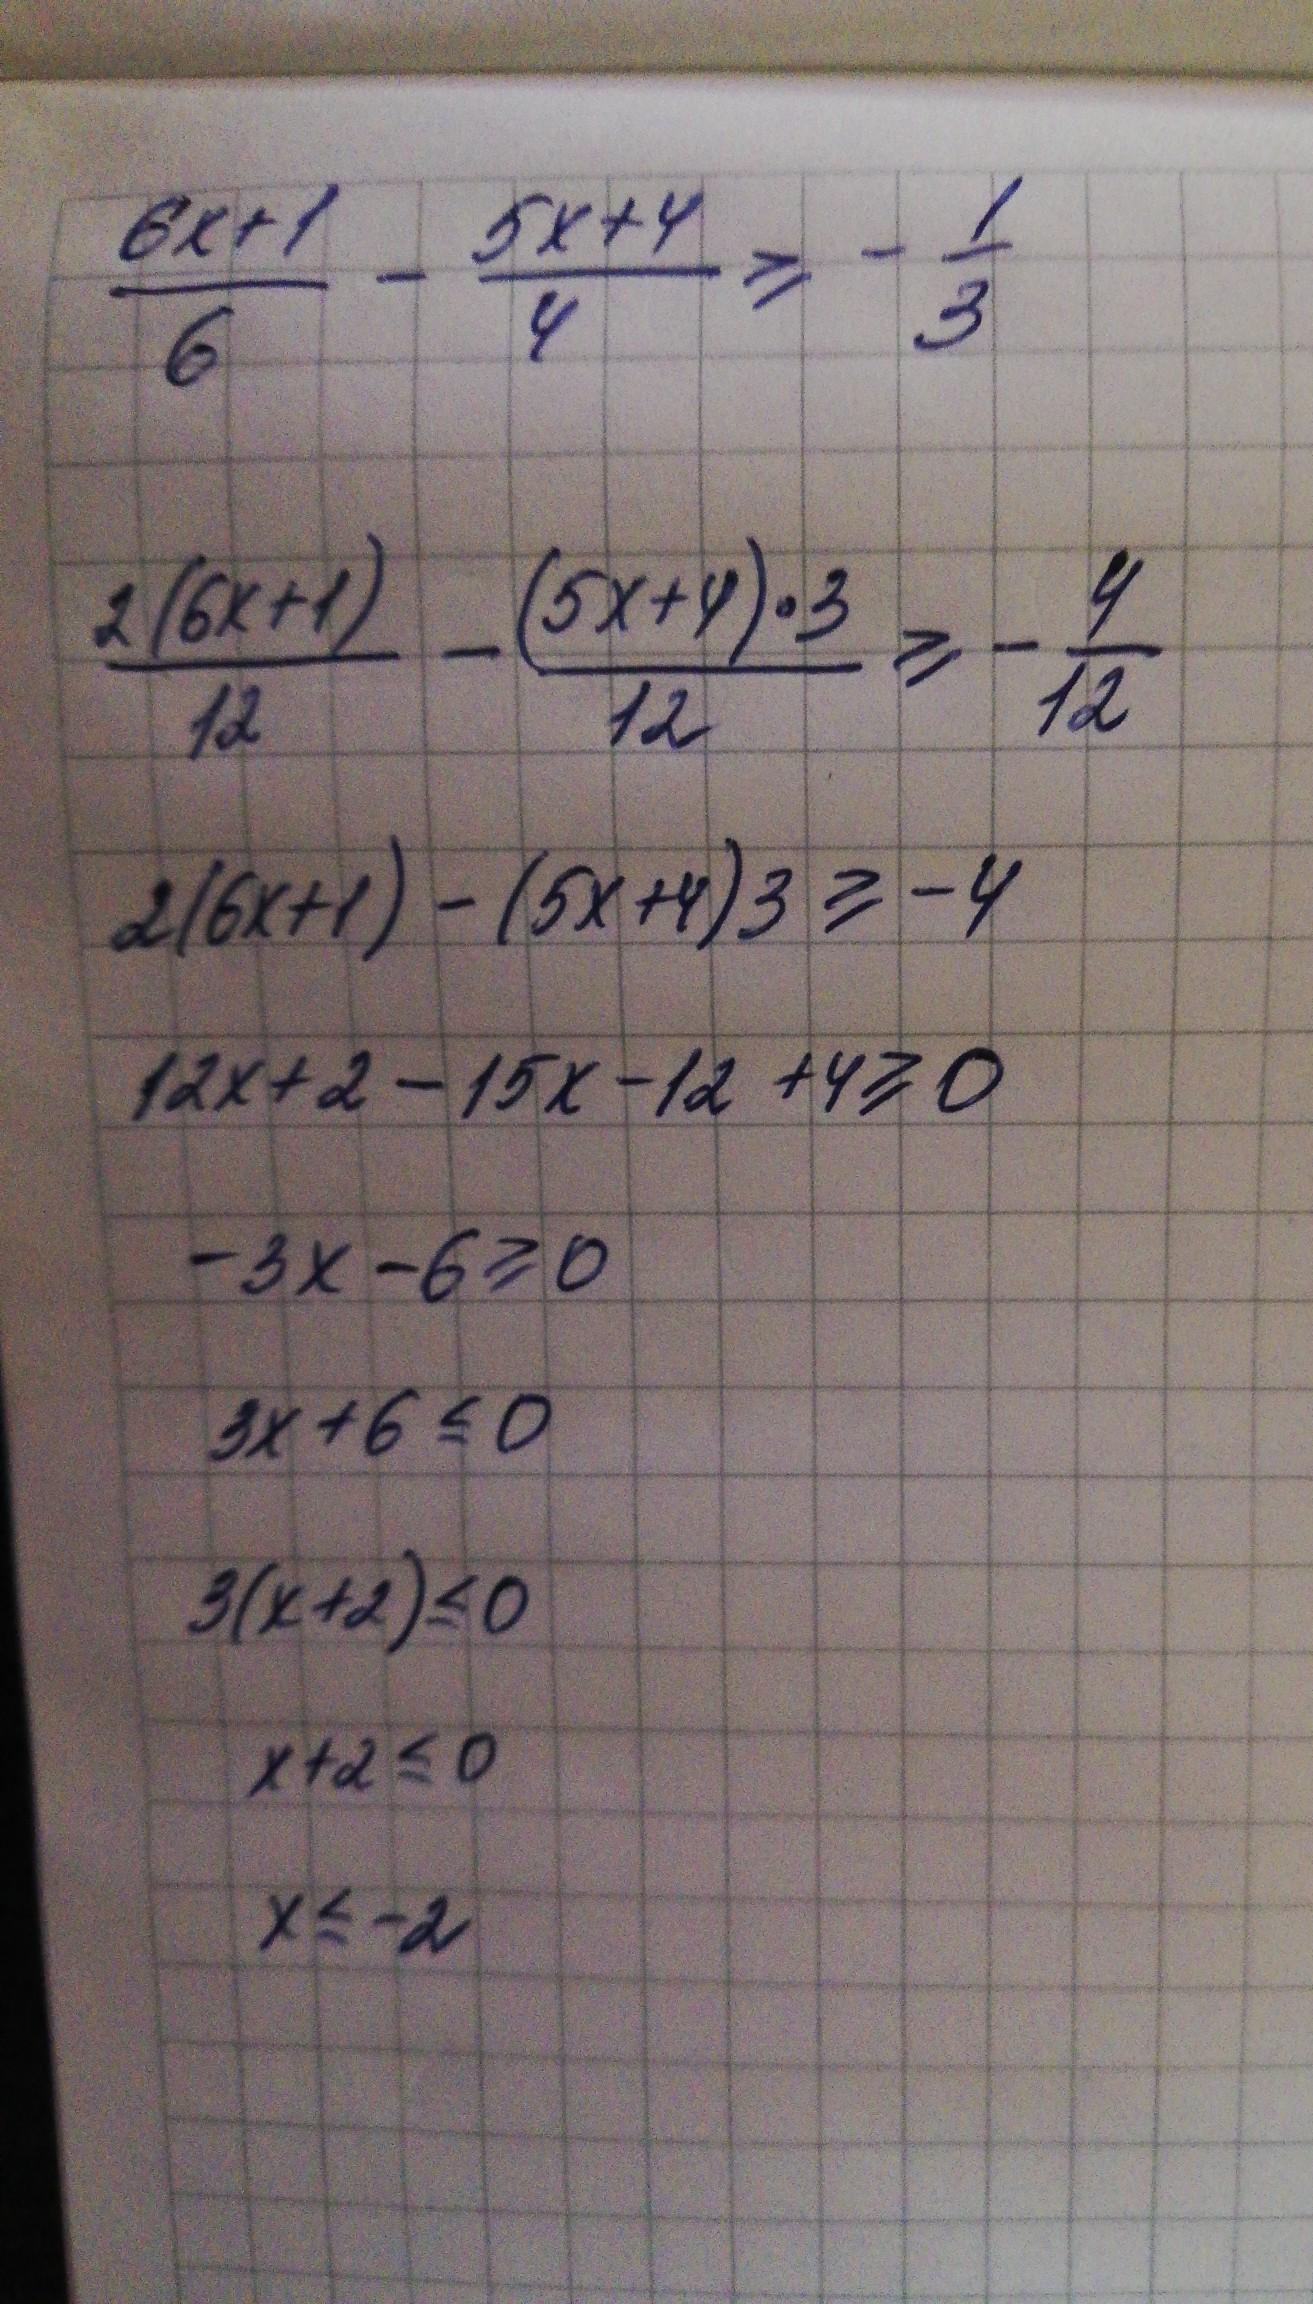 (6x+1)/6 - (5x+4)/4 ≥ - 1/3
2(6x+1)/12 - (5x+4)·3/12 ≥ - 4/12
2(6x+1) - (5x+4)3 ≥ -4
12x+2-15x-12+4≥0
-3x-6≥0
3x+6≤0
3(x+2)≤0
x+2≤0
x≤-2